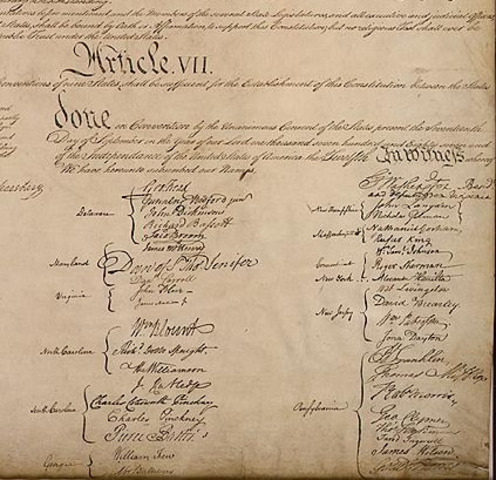 the Members of the several State Legislatures, and all executive and judicial Officers,
States, shall be bound by Oath or Affirmation, to support this Constitution; but no religious Test shall ever be
Public Trust under the United States.
Article. VII.
Conventions of nine States, shall be sufficient for the Establishment of this Constitution between the States
done in Convention by the Unanimous Consent of the States present the Seventeenth
Day of September in the Year of our Lord one thousand seven hundred and Eighty seven and
of the Independance of the United States of America the Twelfth In Witness whereof
We have hereunto subscribed our Names,
Delaware
Geo: Read
Gunning Bedford jun
John Dickinson
Richard Bassett
Jaco: Broom
Maryland
James McHenry
Dan of St Thos Jenifer
Danl Carroll
Virginia
John Blair
North Carolina
Wm Blount
Richd Dobbs Spaight.
Hu Williamson
South Carolina
J. Rutledge
Charles Cotesworth Pinckney
Charles Pinckney
Pierce Butler
Georgia
William Few
Abr Baldwin
New Hampshire
John Langdon
Nicholas Gilman
Massachusetts
Nathaniel Gorham
Rufus King
Connecticut
Wm Saml Johnson
Roger Sherman
New York
Alexander Hamilton
New Jersey
Wil: Livingston
David Brearley
Wm Paterson
Jona: Dayton
Pensylvania
B Franklin
Thomas Mifflin
Robt Morris
Geo. Clymer
Thos FitzSimons
Jared Ingersoll
James Wilson
Gouv Morris